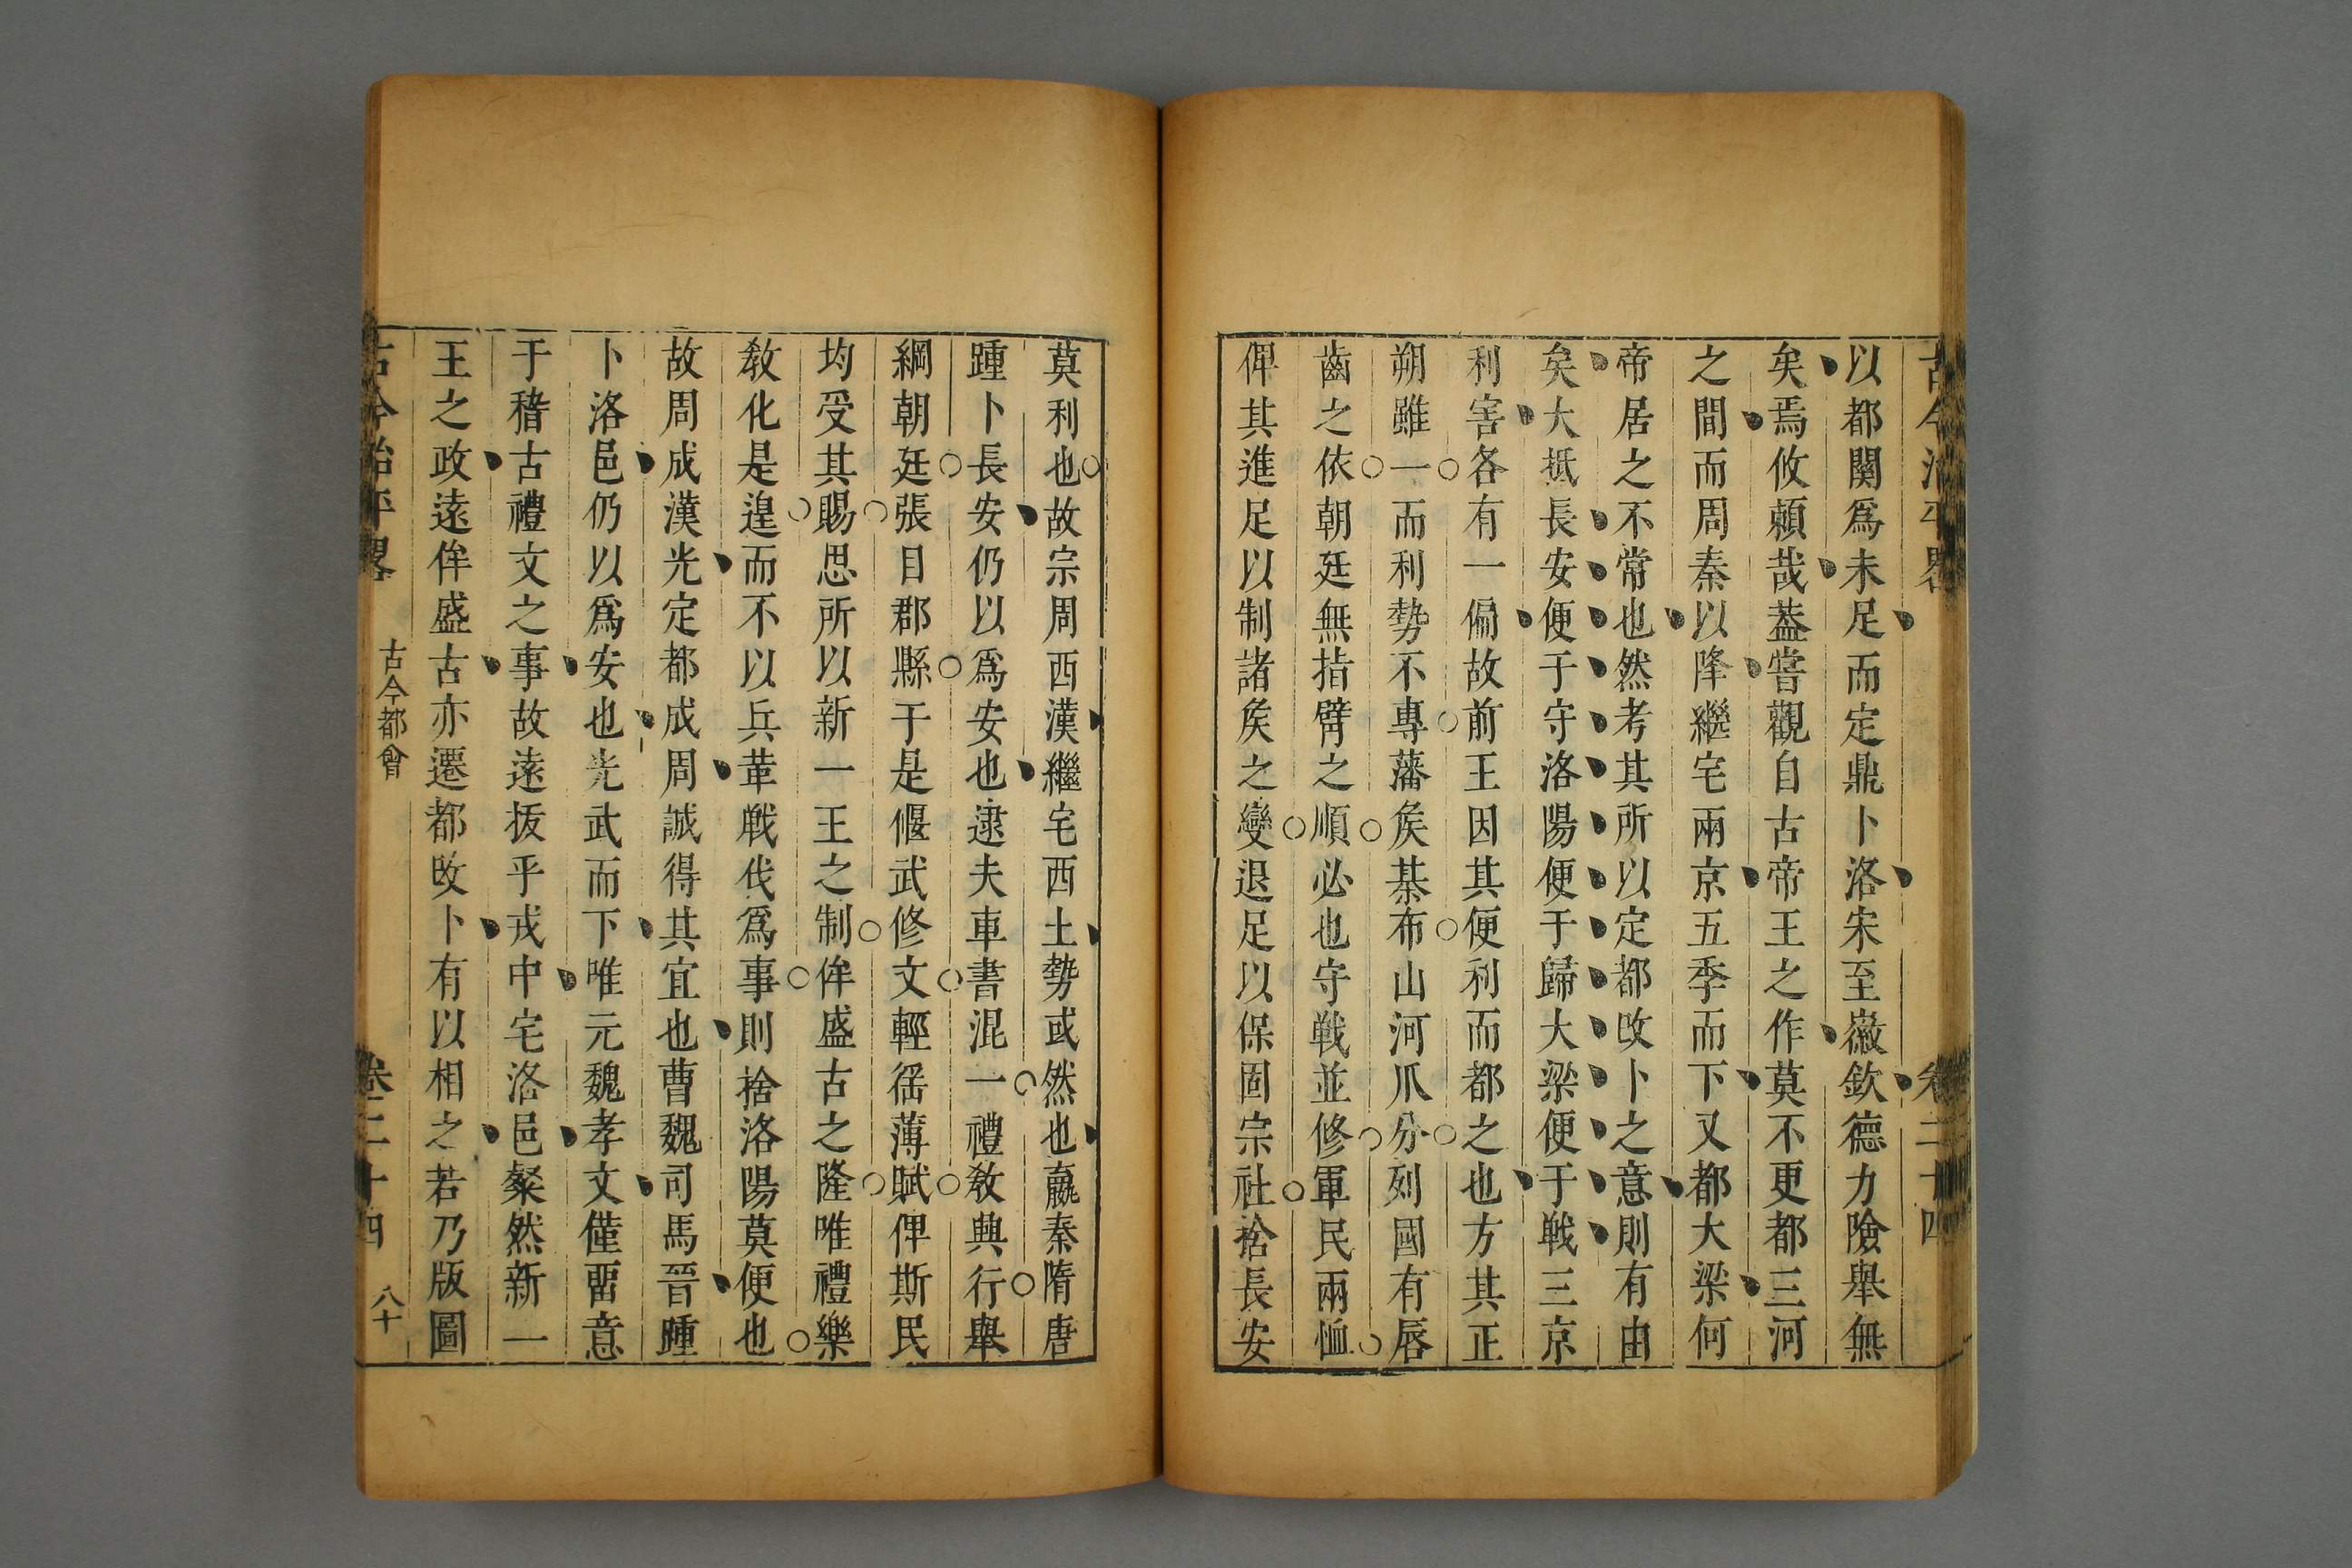 古今治平畧 卷二十四
以都關爲未足而定鼎卜洛宋至徽欽德力險舉無
矣焉攸頼哉葢嘗觀自古帝王之作莫不更都三河
之間而周秦以降繼宅兩京五季而下又都大梁何
帝居之不常也然考其所以定都改卜之意則有由
矣大抵長安便于守洛陽便于歸大梁便于戦三京
利害各有一偏故前王因其便利而都之也方其正
朔雖一而利勢不專藩矦棊布山河爪分列國有唇
齒之依朝廷無指臂之順必也守戦並修軍民兩恤
俾其進足以制諸矦之變退足以保固宗社捨長安
莫利也故宗周西漢繼宅西土勢或然也嬴秦隋唐
踵卜長安仍以爲安也逮夫車書混一禮敎興行舉
綱朝廷張目郡縣于是偃武修文輕徭薄賦俾斯民
均受其賜思所以新一王之制侔盛古之隆唯禮樂
敎化是遑而不以兵革戦伐爲事則捨洛陽莫便也
故周成漢光定都成周誠得其宜也曹魏司馬晉踵
卜洛邑仍以爲安也光武而下唯元魏孝文僅畱意
于稽古禮文之事故遠拔乎戎中宅洛邑粲然新一
王之政遠侔盛古亦遷都改卜有以相之若乃版圖
古今治平畧 古今都會 卷二十四 八十